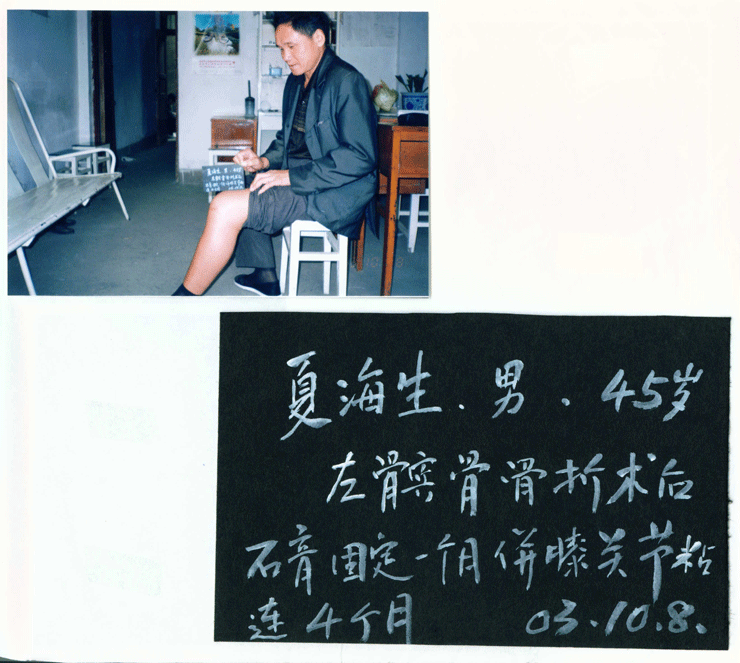 夏海生.男.45岁
左髌骨骨折术后
石膏固定一个月併膝关节粘
连4个月 03.10.8.